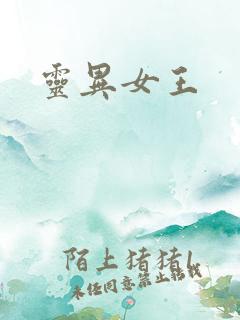 靈異女王
陌上猪猪l
未经同意禁止转载